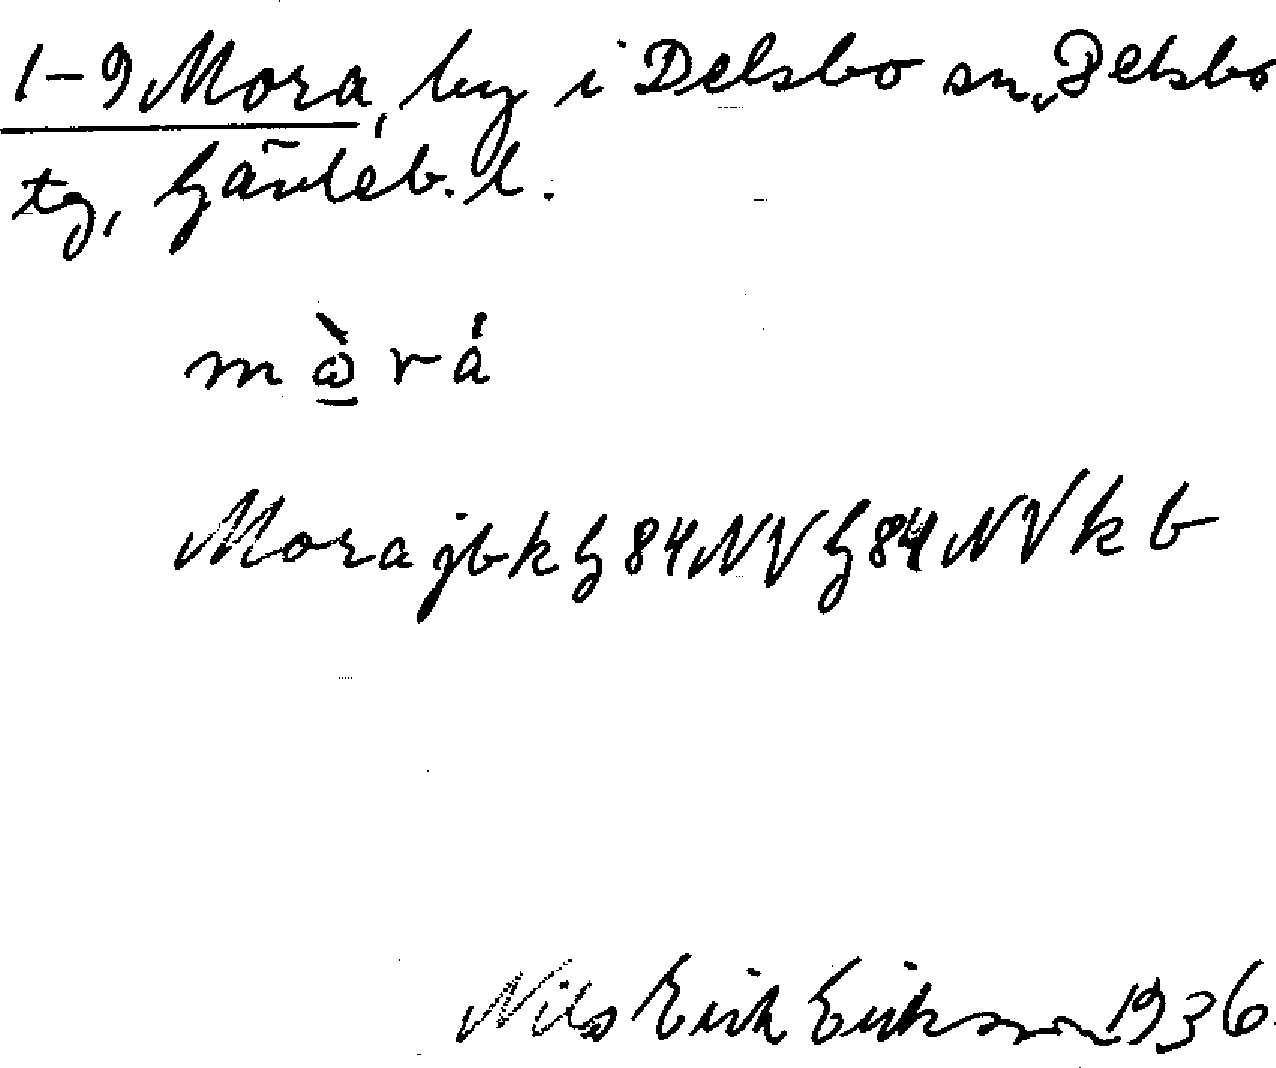 1-9 Mora, by i Delsbo sn, Delsbo
tg, Gävleb. l.
mὼrá
Mora jbk G 84 NV G 84 NV k b
Nils Erik Erikson 1936